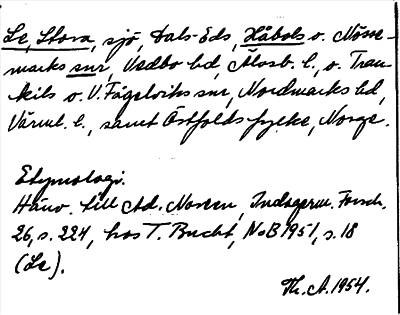 Le, Stora, sjö, Dals-Eds, Håbols o. Nösse-
marks snr, Vedbo hd, Älvsb. l., o. Tran-
kils o. V. Fågelviks snr, Nordmarks hd,
Värml. l., samt Östfolds fylke, Norge.
Etymologi.
Hänv. till Ad. Noreen, Indogerm. Forsch.
26, s. 224, hos T. Bucht, NoB 1951, s. 18
(Le).
Th. A. 1954.